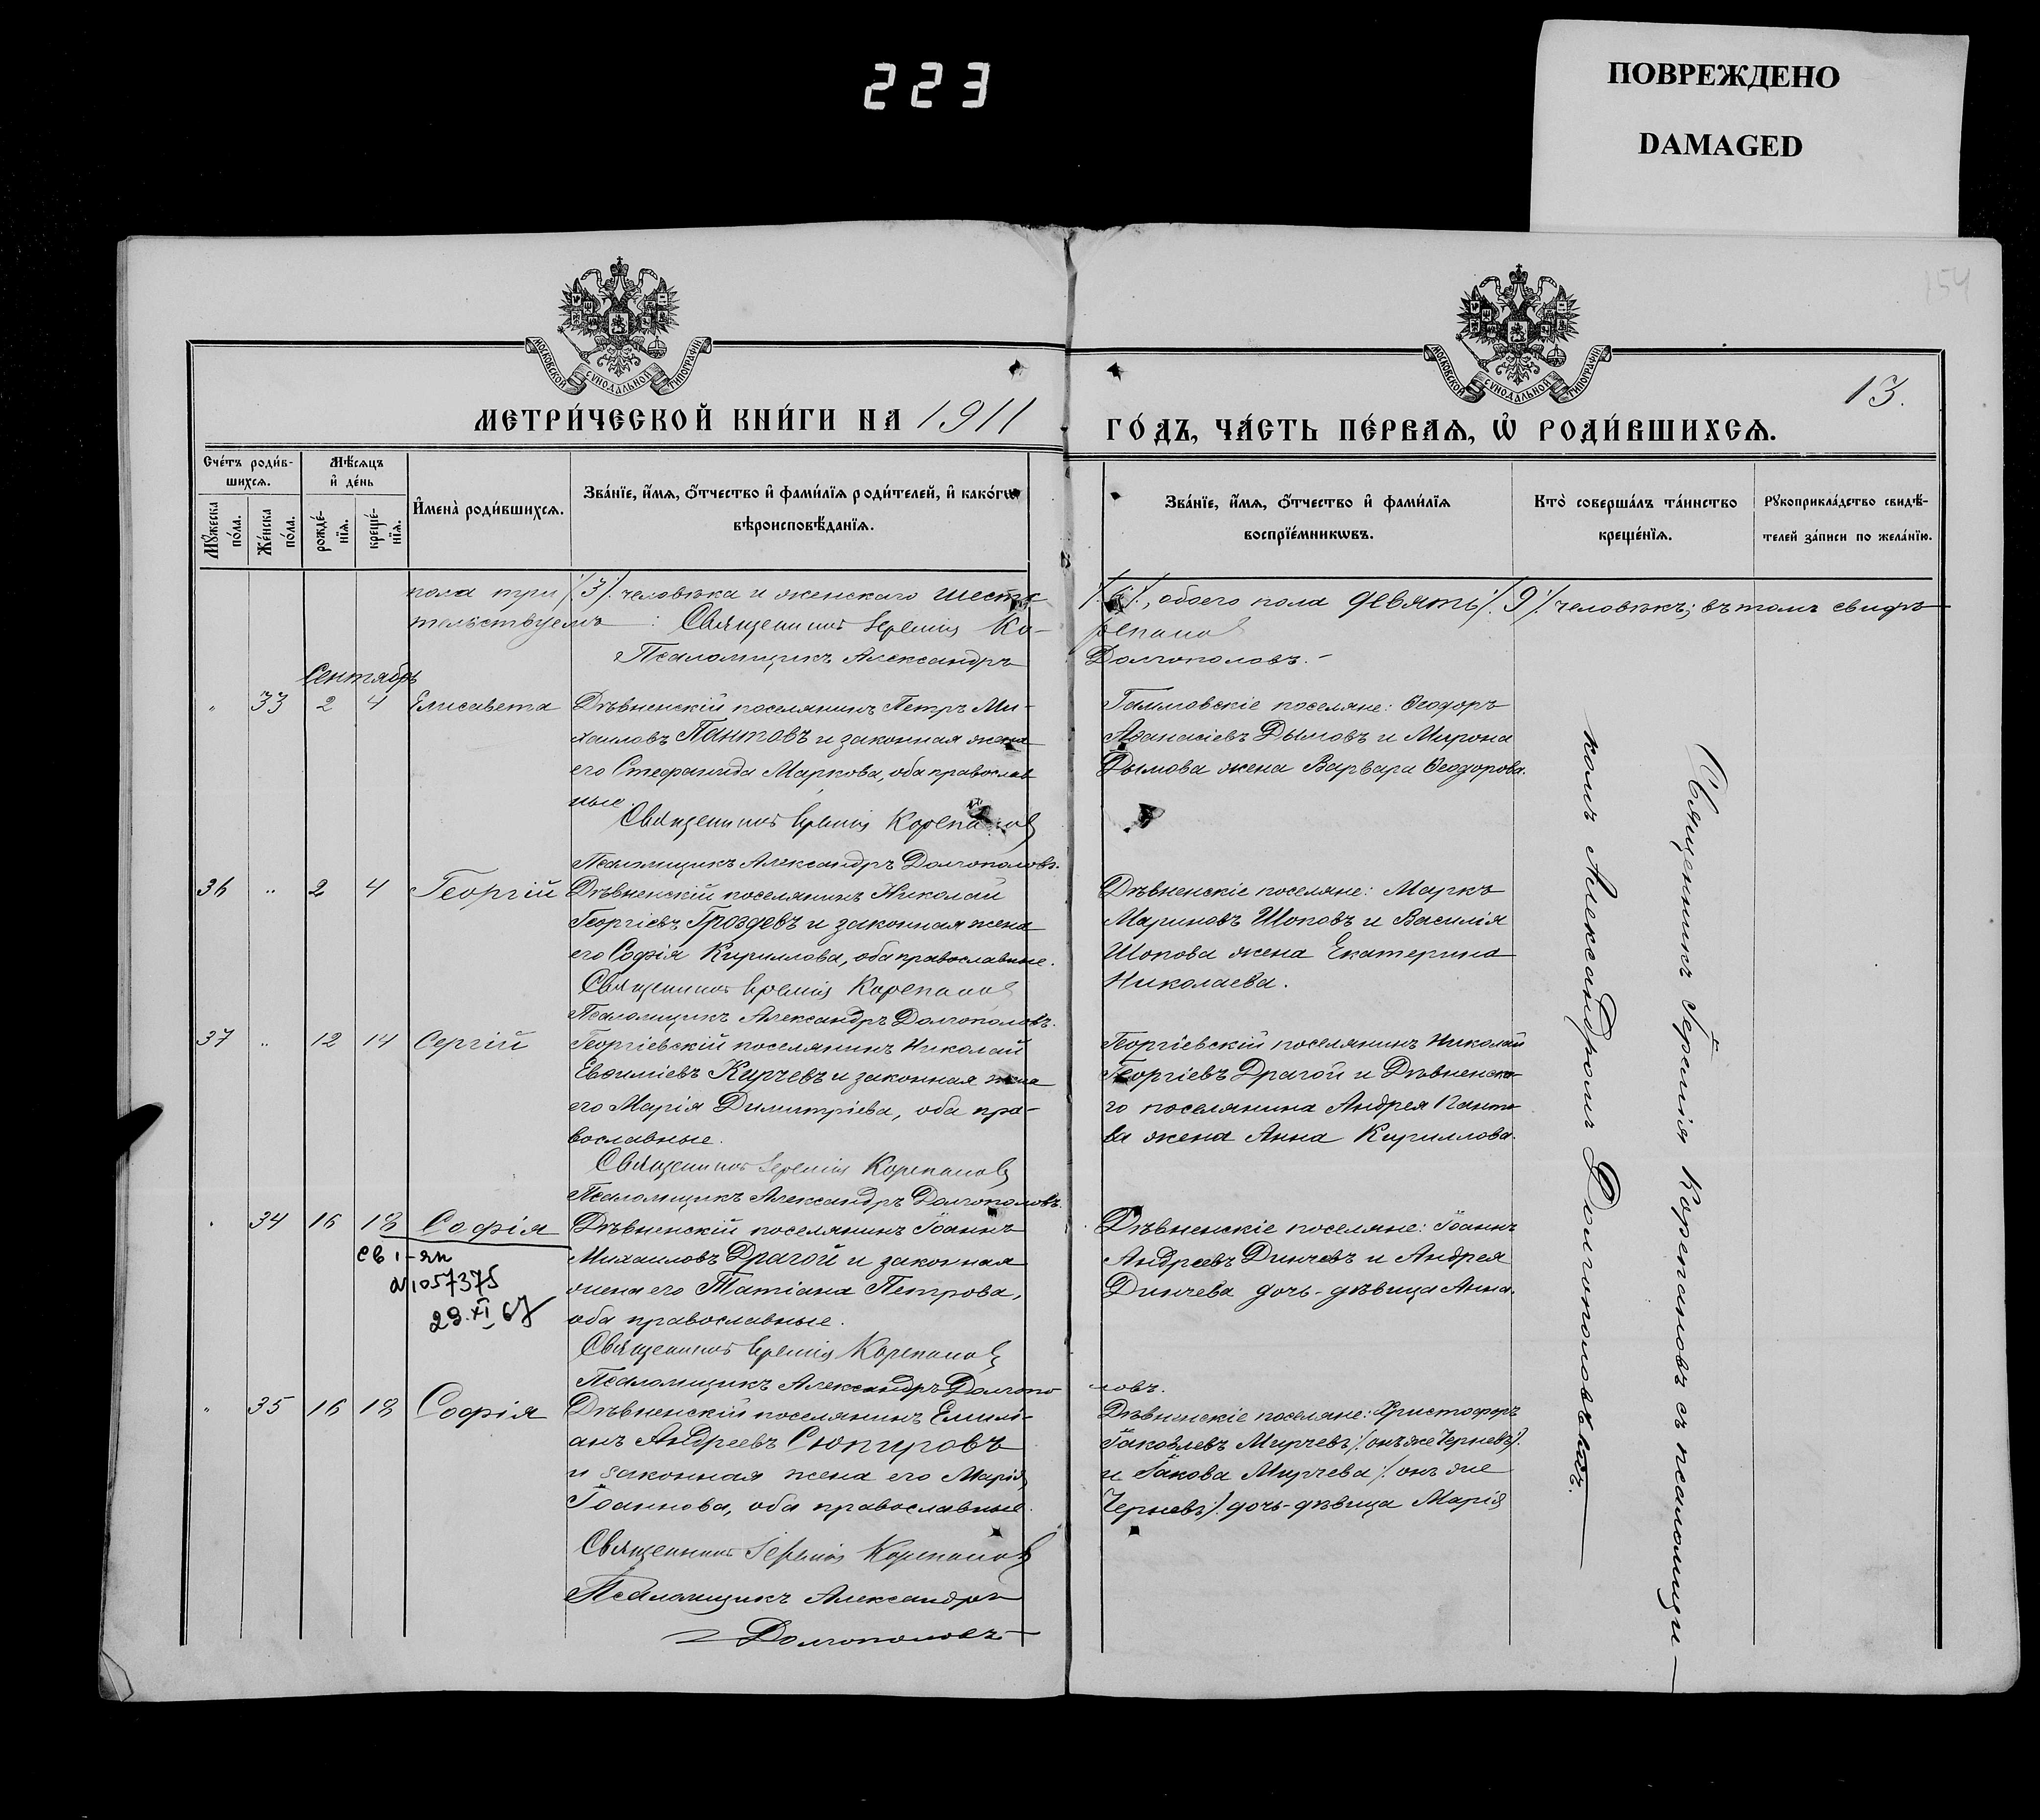 223
ПОВРЕЖДЕНО
DAMAGED
154
МОСКОВСКОЙ СѴНОДАЛЬНОЙ ТИПОГРАФІИ
МОСКОВСКОЙ СѴНОДАЛЬНОЙ ТИПОГРАФІИ
13.
МЕТРИ́ЧЕСКОЙ КНИ́ГИ НА 1911
ГО́ДЪ, ЧА́СТЬ ПЕ́РВАѦ, Ѡ҆ РОДИ́ВШИХСѦ.
Сче́тъ роди́в-
шихсѧ.
Мѣ́сѧцъ
и҆ де́нь
Мꙋ́жеска по́ла.
Же́нска по́ла.
рожде́-
нїѧ.
креще́-
нїѧ.
И҆мена̀ роди́вшихсѧ.
Зва́нїе, и҆́мѧ, ѻ҆́тчество и҆ фами́лїѧ роди́телей, и҆ како́гѡ
вѣроисповѣ́данїѧ.
Зва́нїе, и҆́мѧ, ѻ҆́тчество и҆ фами́лїѧ
воспрїе́мникѡвъ.
Кто̀ соверша́лъ та́инство
креще́нїѧ.
Рꙋкоприкла́дство свидѣ́-
телей за́писи по жела́нїю.
пола три /3/. человѣка и женскаго шесть /6/., обоего пола девять /. 9 /. человѣкъ; въ томъ свидѣ-
тельствуемъ: Священникъ Іеремія Корепановъ
Псаломщикъ Александръ Долгополовъ.-
Сентябрь
" 33 2 4 Елисавета
Дѣвненскій поселянинъ Петръ Ми-
хаиловъ Пантовъ и законная жена
его Стефанида Маркова, оба православ
ные.
Священникъ Іеремія Корепановъ
Псаломщикъ Александръ Долгополовъ.
Аѳанасіевъ Дымовъ и Мирона
Дымова жена Варвара Ѳеодорова.
36 " 2 4 Георгій
Дѣвненскій поселянинъ Николай
Георгіевъ Гроздевъ и законная жена
его Софія Кириллова, оба православные.
Священникъ Іеремія Корепановъ
Псаломщикъ Александръ Долгополовъ.
Дѣвненскіе поселяне: Маркъ
Мариновъ Шоповъ и Василія
Шопова жена Екатерина
Николаева.
37 " 12 14 Сергій
Георгіевскій поселянинъ Николай
Евѳиміевъ Кирчевъ и законная жена
его Марія Димитріева, оба пра-
вославные.
Священникъ Іеремія Корепановъ
Псаломщикъ Александръ Долгополовъ.
Георгіевскій поселянинъ Николай
Георгіевъ Драгой и Дѣвненска-
го поселянина Андрея Панто
ва жена Анна Кириллова.
" 34 16 18 Софія
св I-яп
№1057375
29.XI 67
Дѣвненскій поселянинъ Іоаннъ
Михаиловъ Драгой и законная
жена его Татіана Петрова,
оба православные.
Священникъ Іеремія Корепановъ
Псаломщикъ Александръ Долгопо ловъ.
Дѣвненскіе поселяне: Іоаннъ
Андреевъ Динчевъ и Андрея
Динчева дочь-дѣвица Анна.
" 35 16 18 Софія
Дѣвненскій поселянинъ Емилі-
анъ Андреевъ Сюпуровъ
и законная жена его Марія
Іоаннова, оба православные.
Священникъ Іеремія Корепановъ
Псаломщикъ Александръ
Долгополовъ
Дѣвненскіе поселяне: Христофоръ
Іаковлевъ Мирчевъ /. онъ же Черневъ/.
и Іакова Мирчева /. онъ же
Черневъ/. дочь-дѣвица Марія
Священникъ Іеремія Корепановъ съ псаломщи-
комъ Александромъ Долгополовымъ.